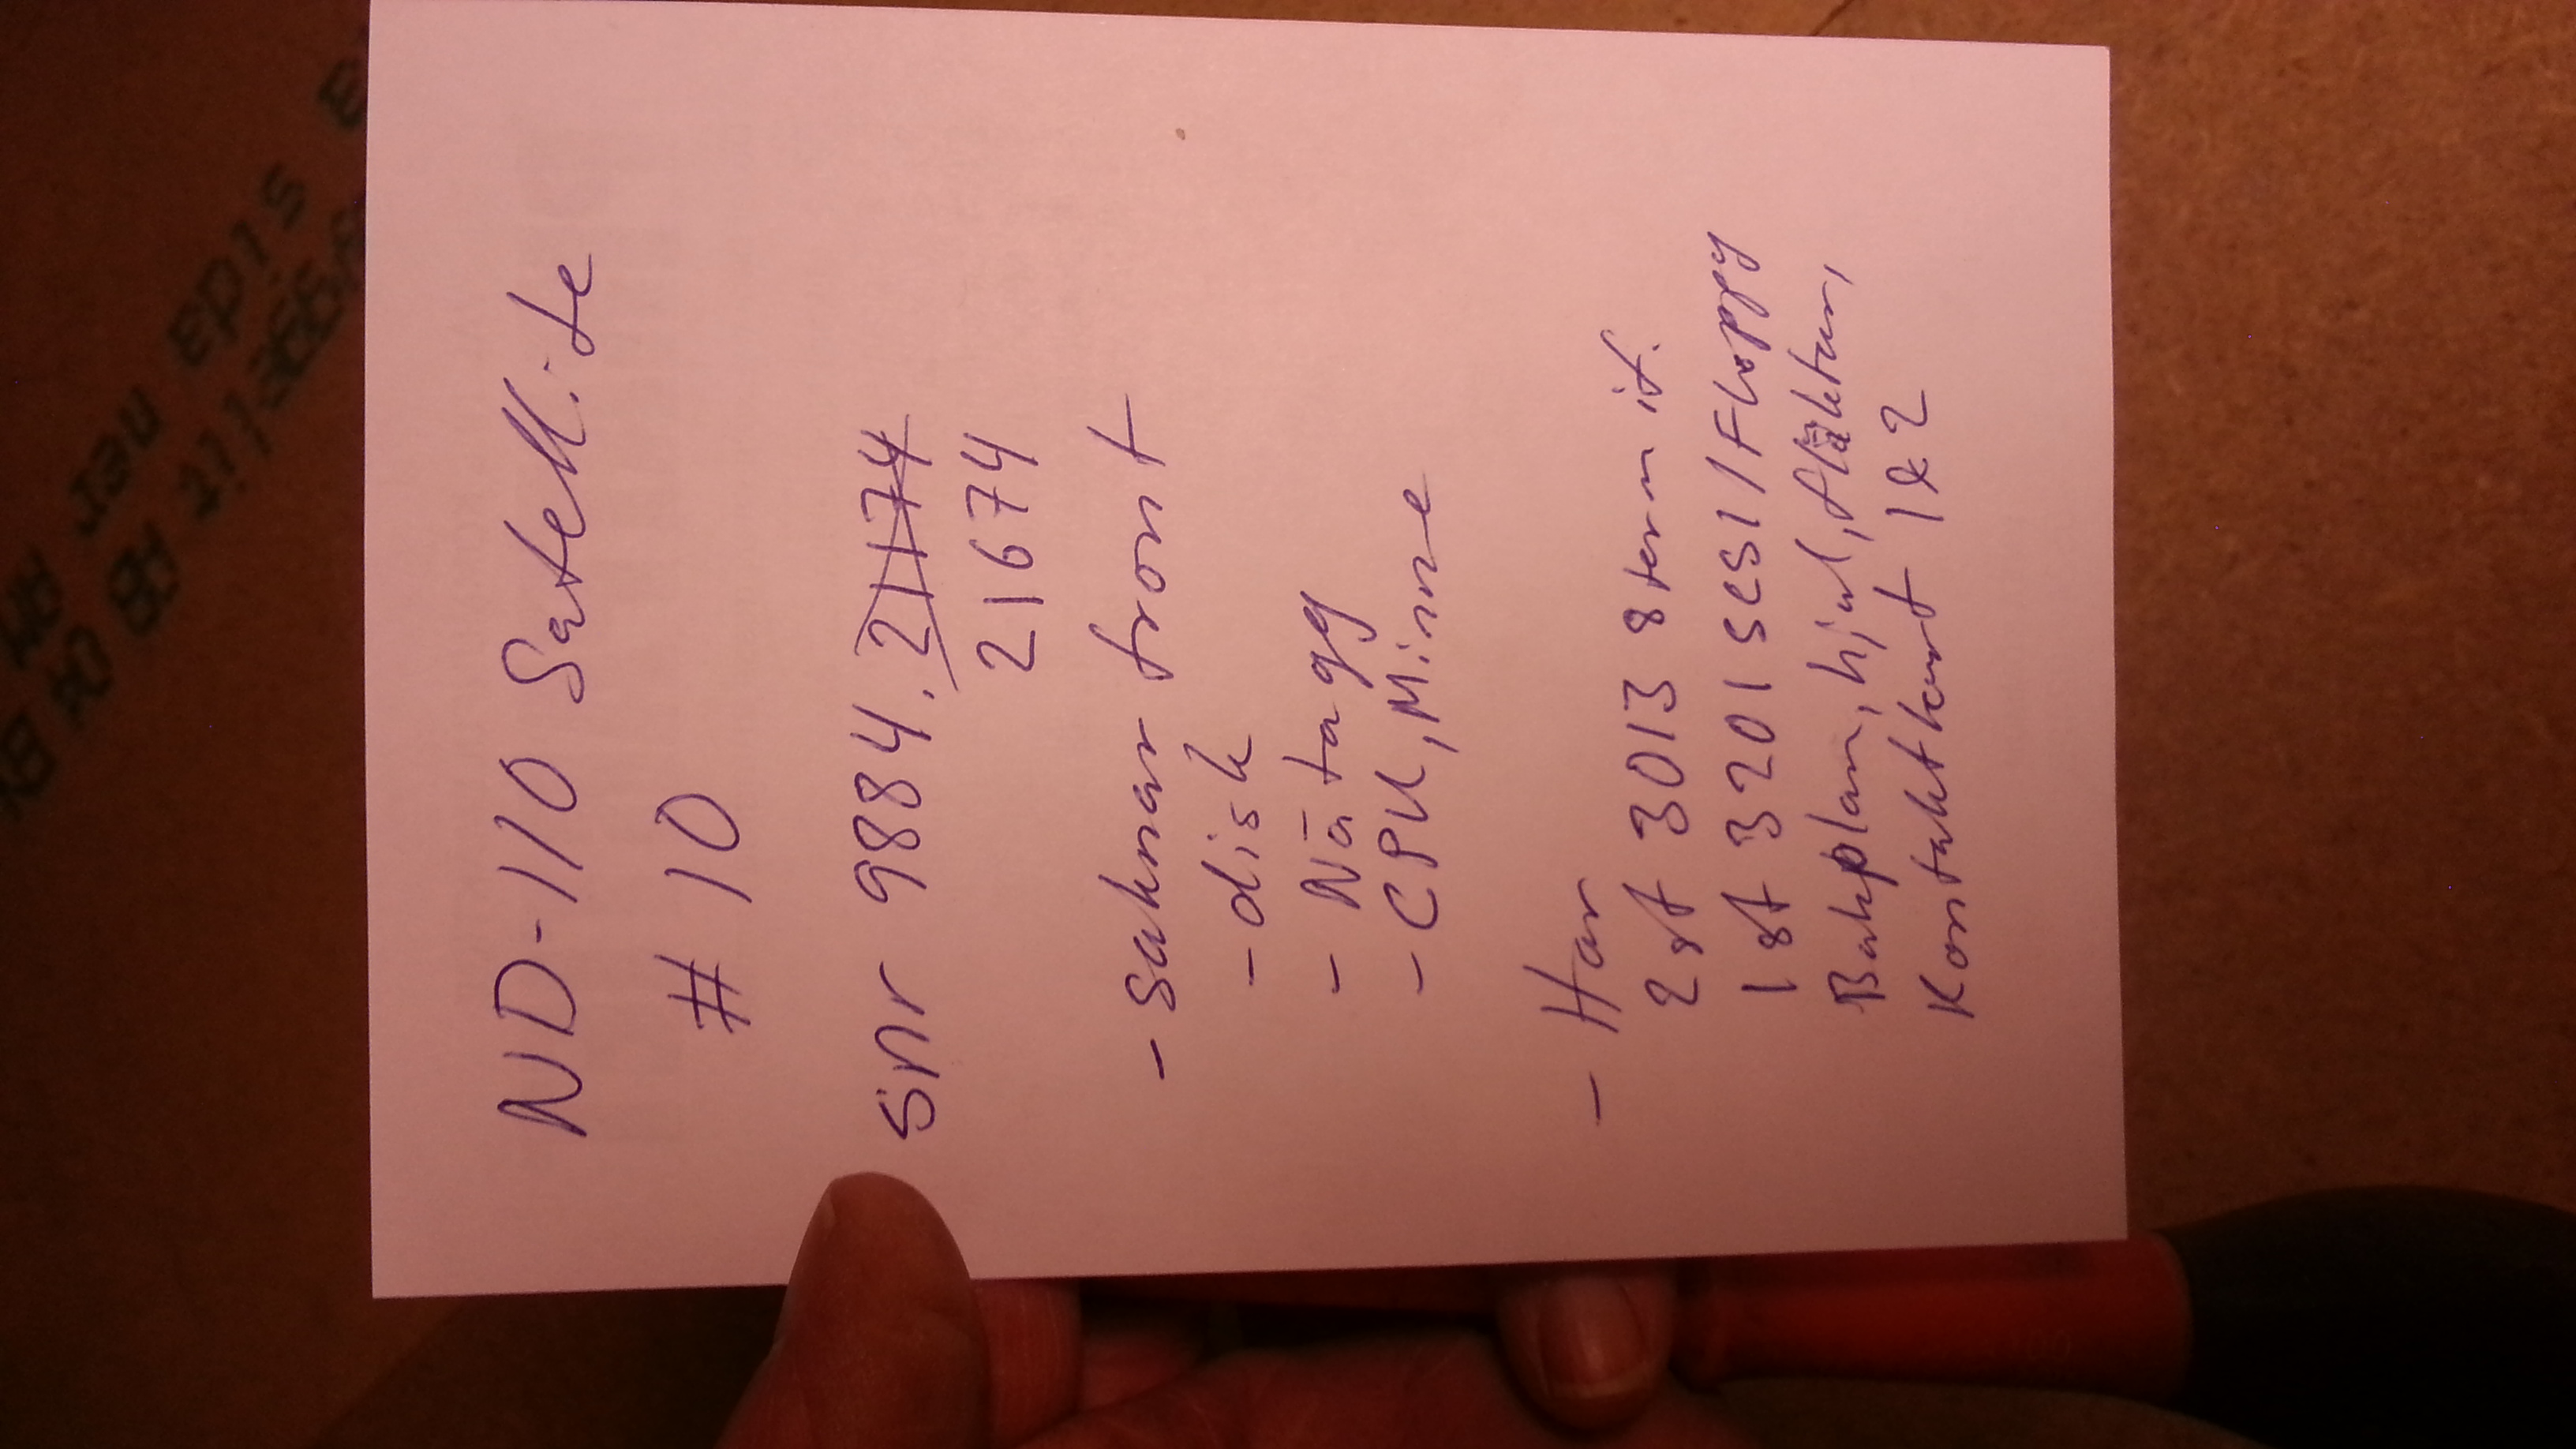 ND-110 Satellite
# 10
snr 9884. 21174
21674
- Saknar front
- disk
- Nätagg
- CPU, Minne
- Har
2 st 3013 8 term if.
1 st 3201 SCSI/Floppy
Bakplan, hjul, fläktar,
Kontaktkort 1&2